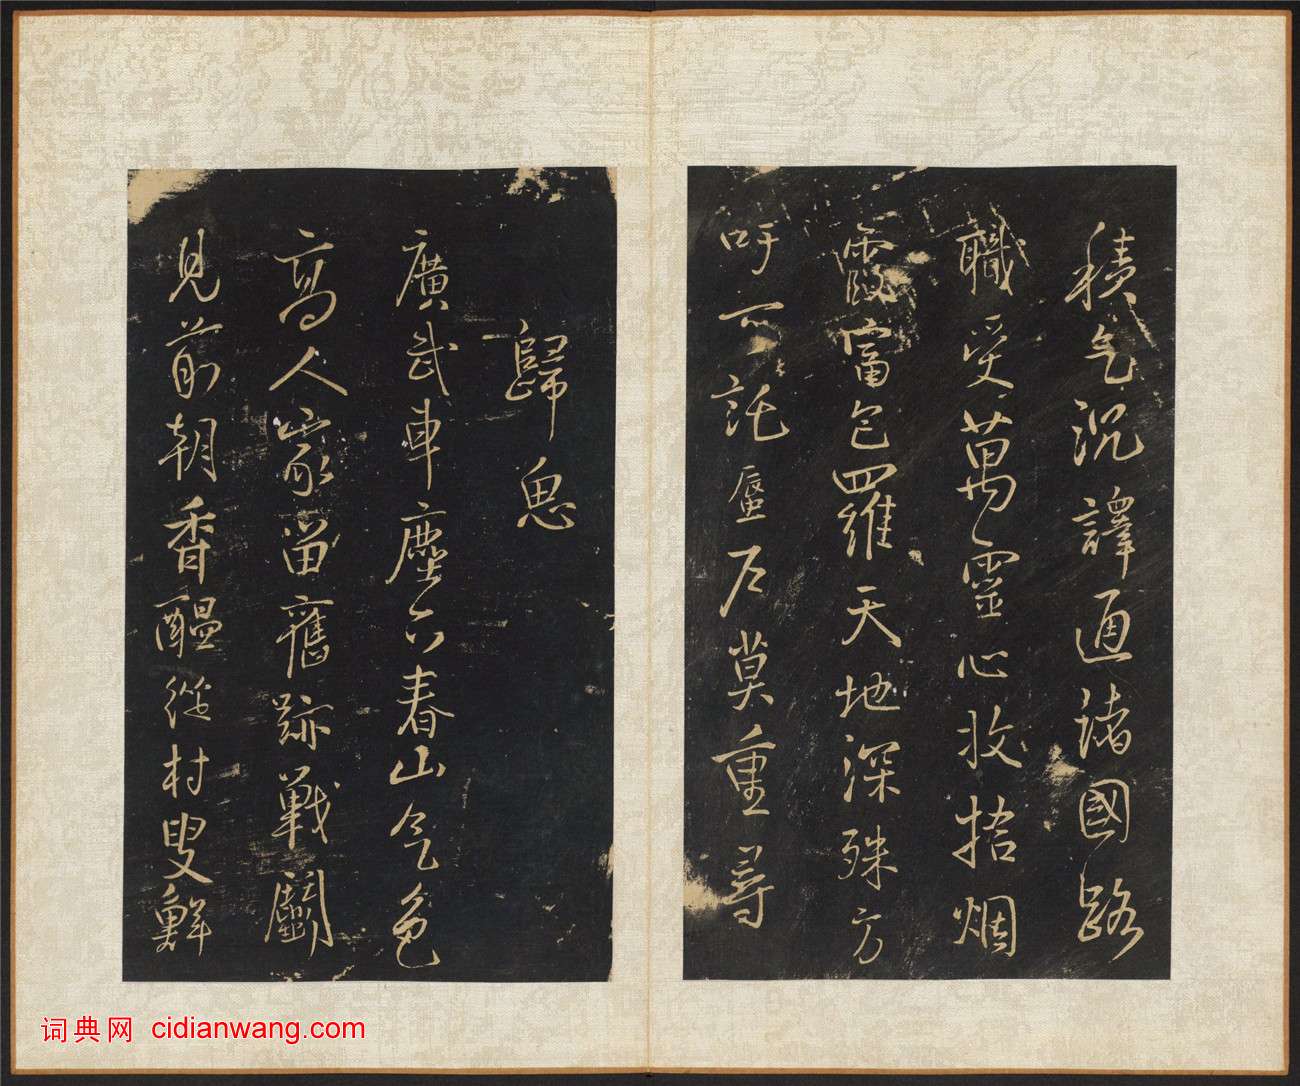 積气沉譯通諸國路
職受萬靈心收捨烟
霞富包羅天地深殊方
吁可託蜃尺莫重尋
歸思
廣武車塵亦春山气色
高人家留舊跡戰鬭
見前朝香醖從村叟鮮
词典网 cidianwang.com